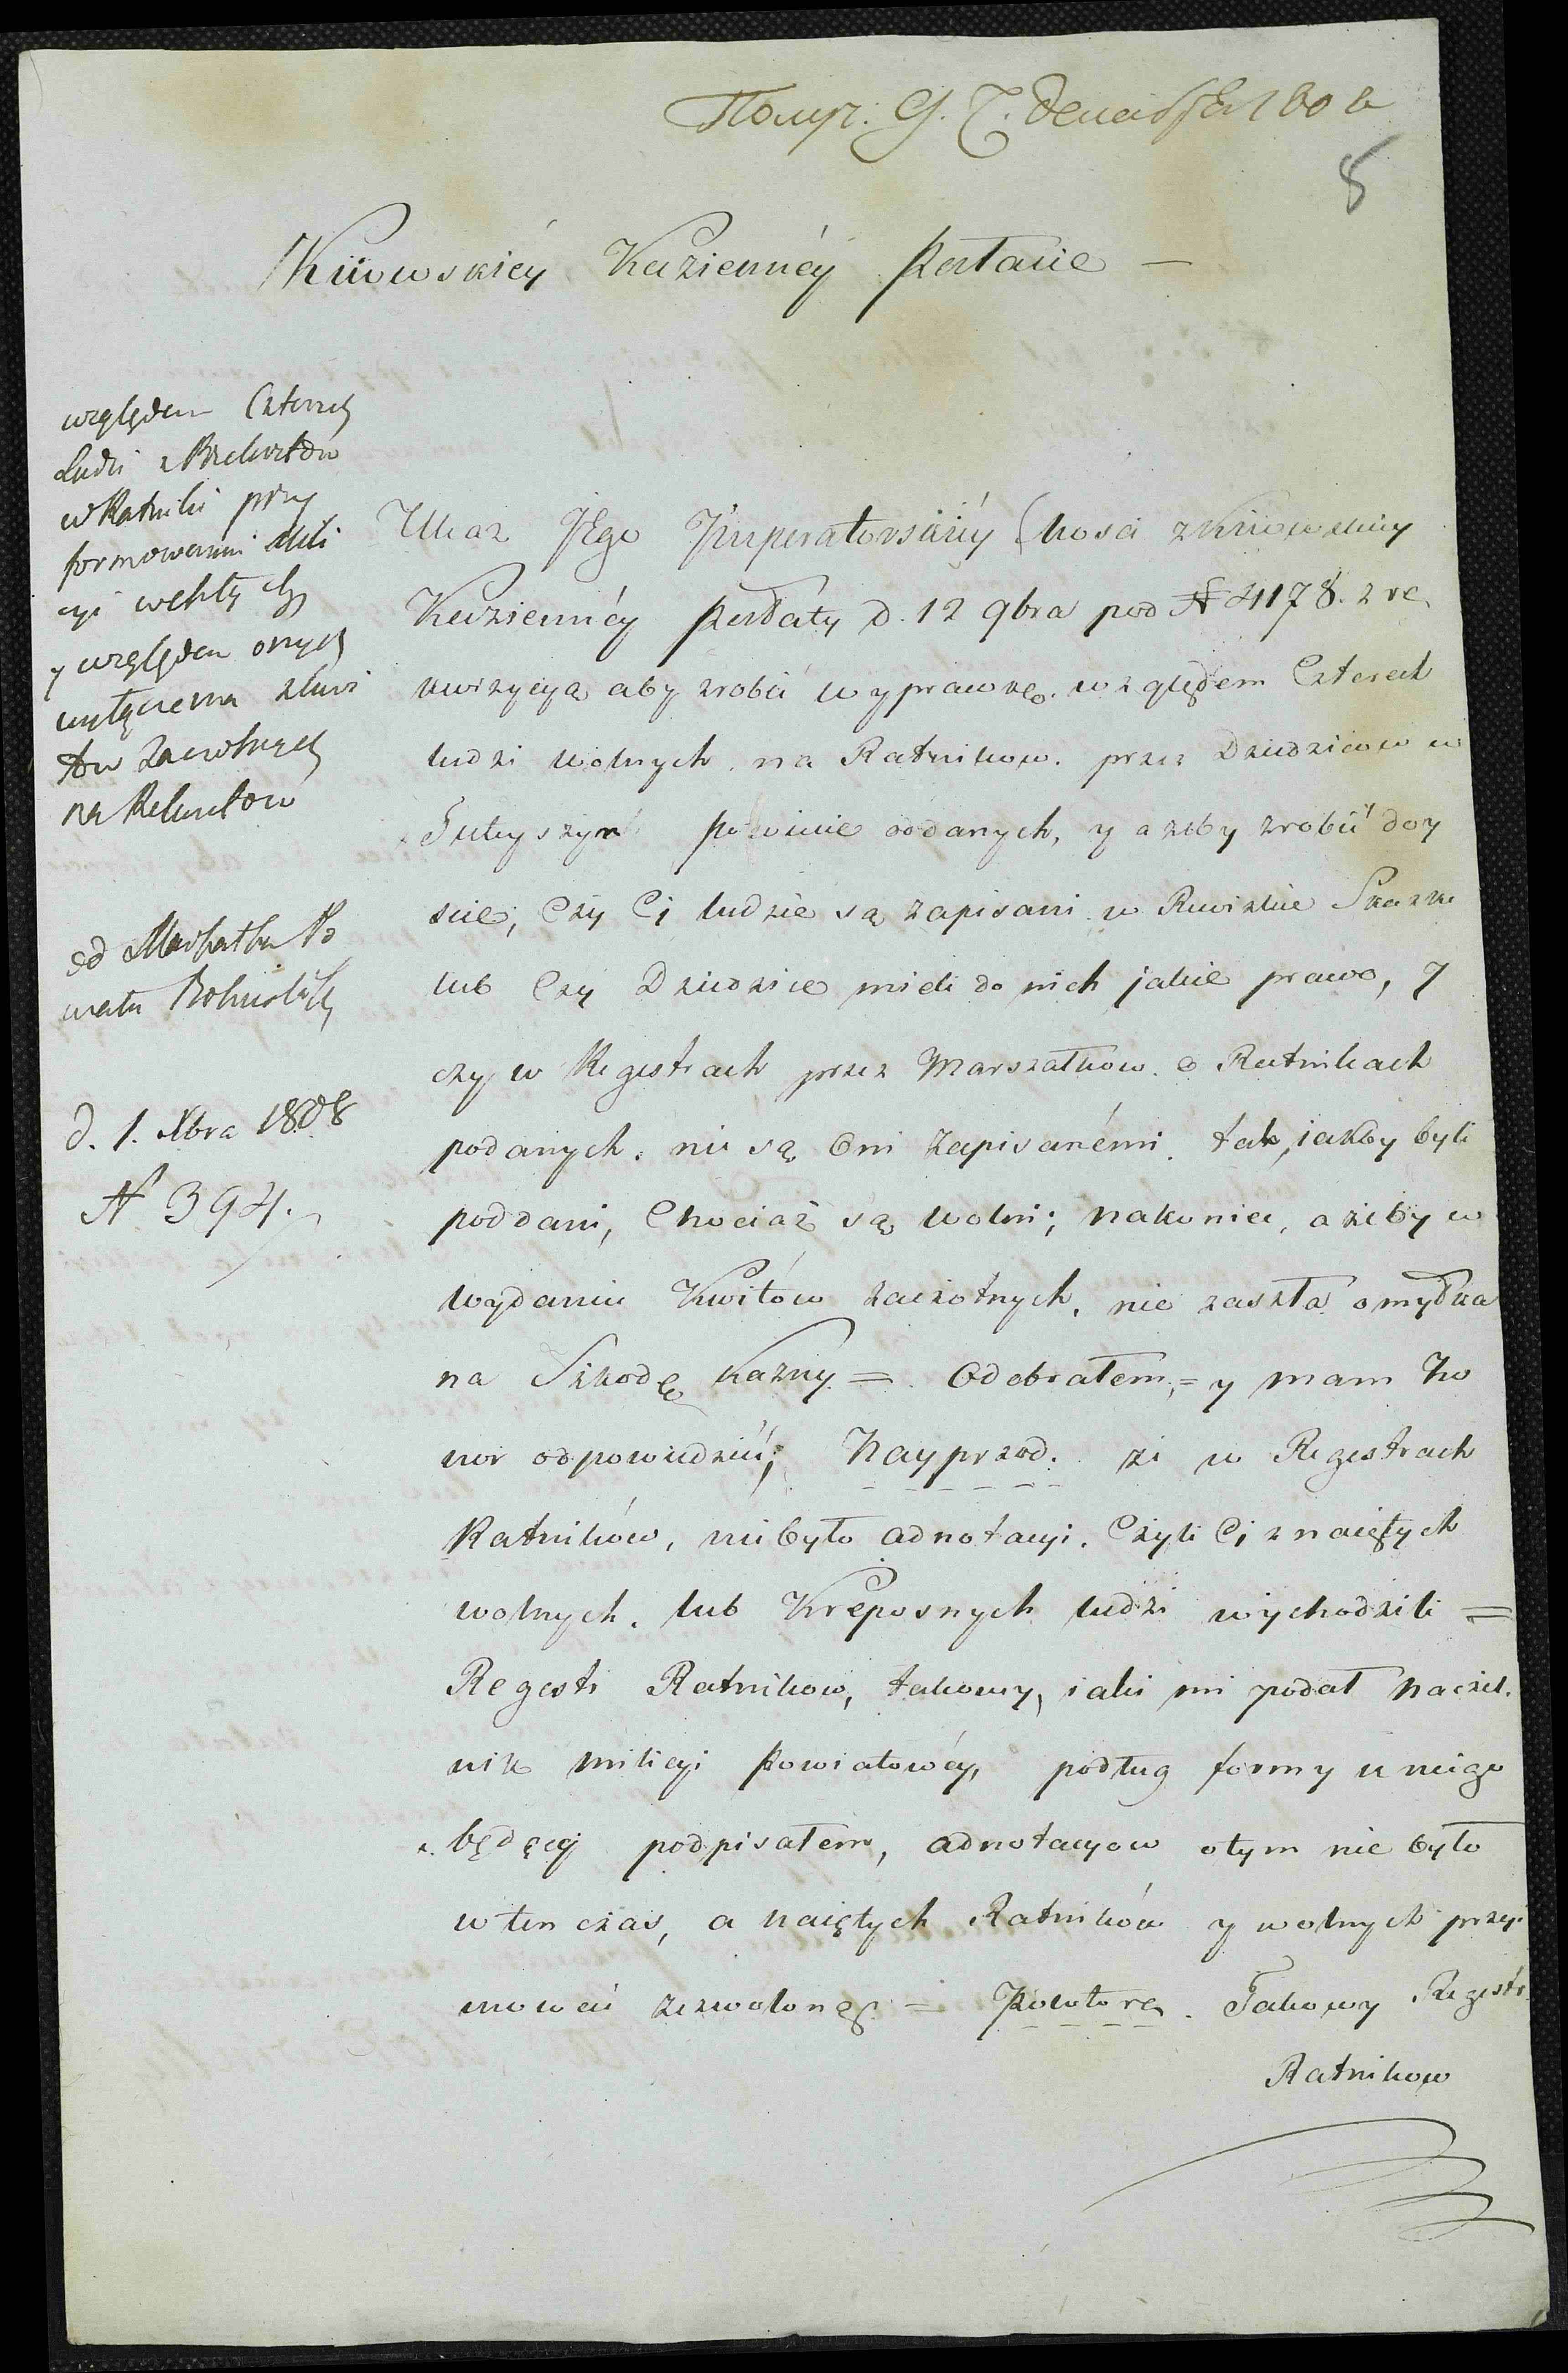 8
Kiiowskiey Kazienney Pałacie —
względem Czterech
Ludzi z Rekrutów
w Ratniki przy
formowaniu Mili
cyi weszłych
y względem onych
wyłączenia z kwi
tów Zaczotnych
na Rekrutów
od Marszałka Po
wiatu
d. 1. Xbra 1808
N 394.
Ukaz JEgo Imperatorskiey Mości z Kiiowskiey
Kazienney Pałaty d. 12 9bra pod N 4178. z re
kwizycyą aby zrobić wyprawkę. względem Czterech
ludzi wolnych na Ratnikow. przez Dziedzicow w
powiecie oddanych, y ażeby zrobić doy
ście, Czy Ci ludzie są zapisani w Rewizkie Skazki
lub Czy Dziedzice mieli do nich jakie prawo, y
czy w Regestrach przez Marszałkow. o Ratnikach
podanych. nie są Oni Zapisanémi. tak, iakby byli
poddani, Chociaż są wolni; nakoniec, ażeby w
wydaniu Kwitów zaczotnych, nie zaszła omyłka
na Szkodę Kazny = Odebrałem, = y mam ho
nor odpowiedzieć; Nayprzod. że w Regestrach
Ratników, nie było adnotacyi. Czyli Ci z naiętych
wolnych. lub Kreposnych ludzi wychodzili =
Regestr Ratnikow, takowy, iaki mi podał Naczel.
nik milicyi Powiatowéy, podług formy u niego
będącey podpisałem, adnotacyow otym nie było
w ten czas, a naiętych Ratników y wolnych przy
mować zezwolono = Powtore. Takowy Regestr
Ratnikow